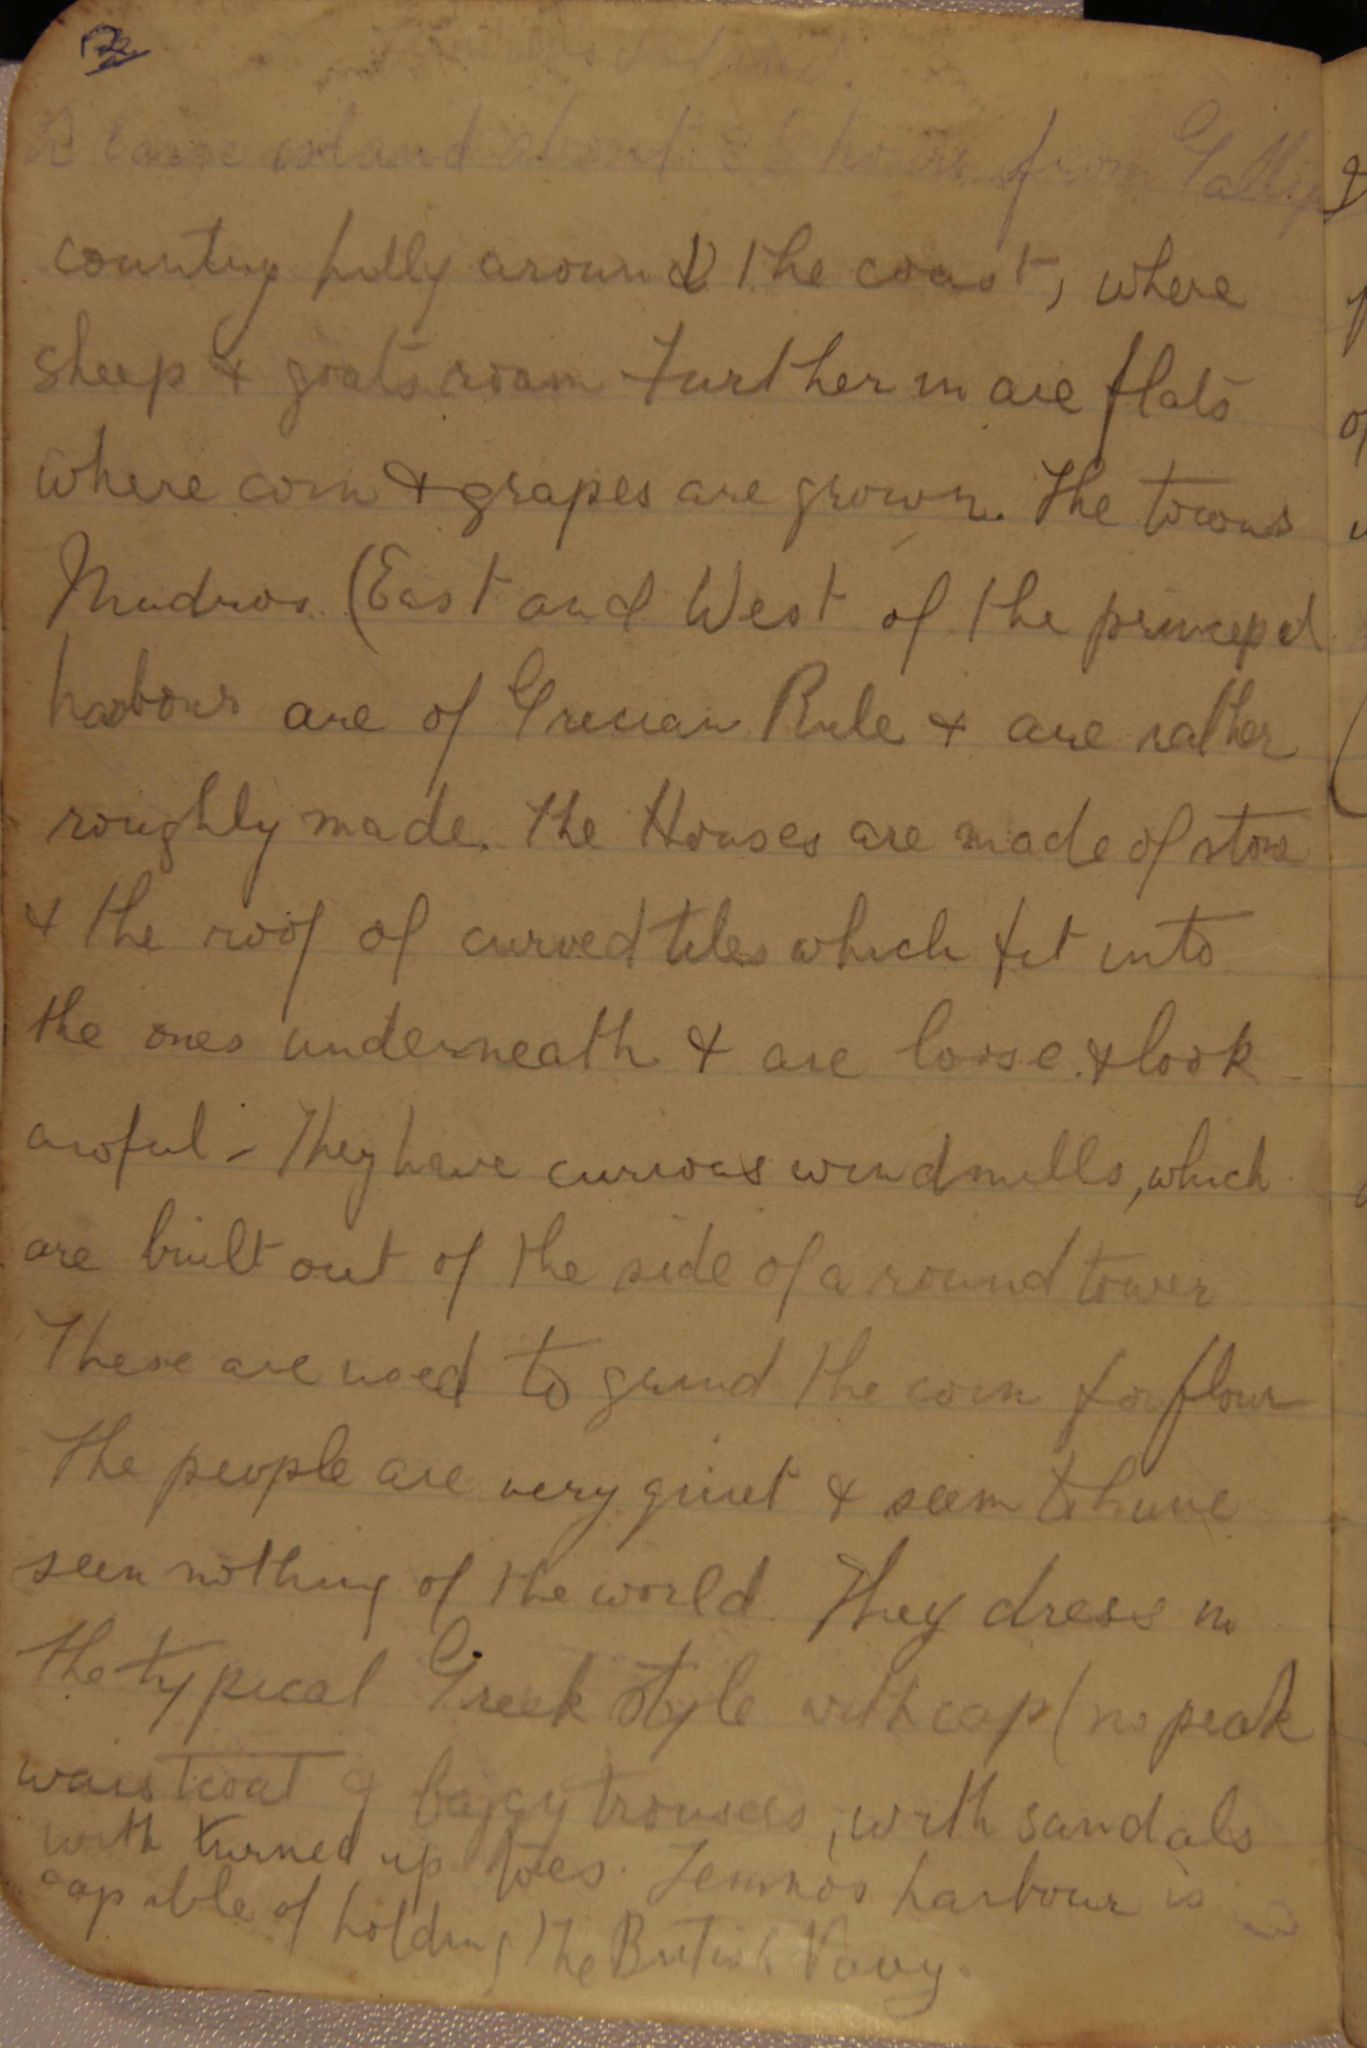 Island.
A large island about 3½ hours from Gallip
country hilly around the coast, where
sheep & goats roam further in are flats
where corn & grapes are grown. The towns
Mudros (East and West of the principal
harbour are of Grecian Rule & are rather
roughly made. The Houses are made of stone
& the roof of curved tiles which fit into
the ones underneath & are loose. & look
awful - They have curious windmills, which
are built out of the side of a round tower
These are used to grind the corn for flour
The people are very quiet & seem to have
seen nothing of the world. They dress in
the typical Greek style with cap (no peak
waistcoat & baggy trousers, with sandals
with turned up toes. Lemnos harbour is
capable of holding the British Navy.